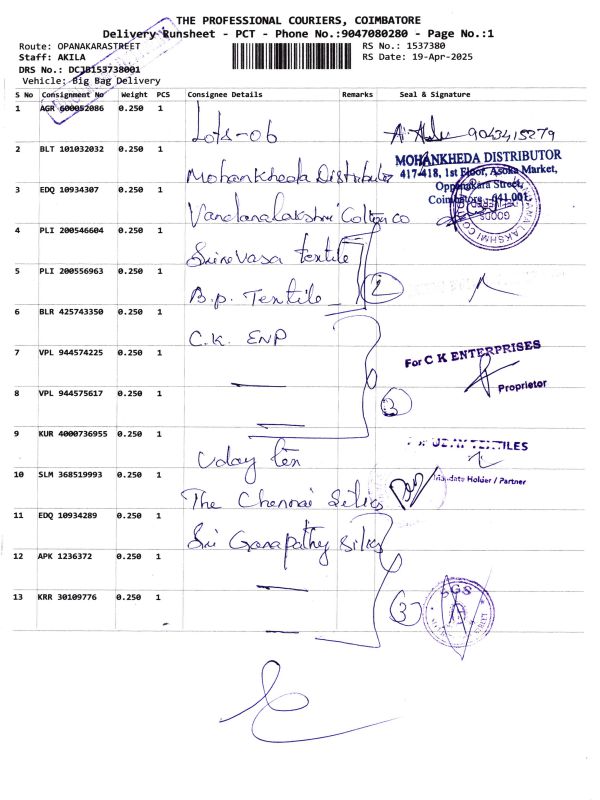 THE PROFESSIONAL COURIERS, COIMBATORE
Delivery Runsheet - PCT - Phone No.:9047080280 - Page No.:1
Route: OPANAKARASTREET RS No.: 1537380
Staff: AKILA RS Date: 19-Apr-2025
DRS No.: DCJB153738001
Vehicle: Big Bag Delivery
S No Consignment No Weight PCS Consignee Details Remarks Seal & Signature
1 AGR 600052086 0.250 1 Lots-06 9043415279
2 BLT 101032032 0.250 1 Mohankheda Distributor
MOHANKHEDA DISTRIBUTOR
417-418, 1st Floor, Asoka Market,
Oppanakara Street,
Coimbatore - 641 001.
3 EDQ 10934307 0.250 1 Vandanalakshmi Cotton co
4 PLI 200546604 0.250 1 Srinivasa textile
5 PLI 200556963 0.250 1 B.p. Textile 2
6 BLR 425743350 0.250 1 C.K. ENP
7 VPL 944574225 0.250 1
For C K ENTERPRISES
Proprietor
8 VPL 944575617 0.250 1 3
9 KUR 4000736955 0.250 1 Uday tex
UDAY TEXTILES
10 SLM 368519993 0.250 1 The Chennai Silks
Mandate Holder / Partner
11 EDQ 10934289 0.250 1 Sri Ganapathy Silks
12 APK 1236372 0.250 1
13 KRR 30109776 0.250 1 3
SGS